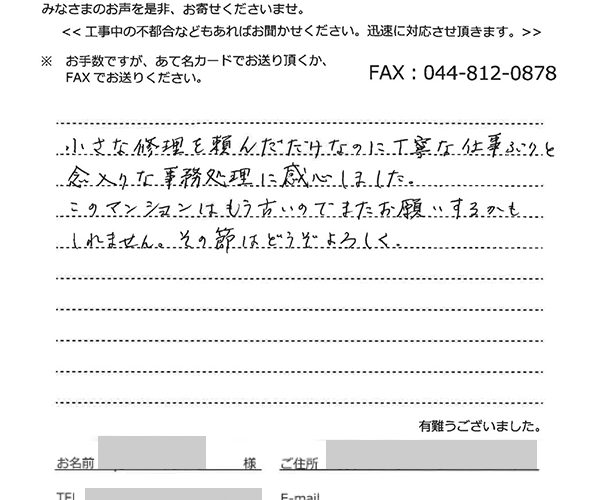 みなさまのお声を是非、お寄せくださいませ。
<< 工事中の不都合などもあればお聞かせください。迅速に対応させ頂きます。>>
※ お手数ですが、あて名カードでお送り頂くか、
FAXでお送りください。
FAX：044-812-0878
小さな修理を頼んだだけなのに丁寧な仕事ぶりと
念入りな事務処理に感心しました。
このマンションはもう古いのでまたお願いするかも
しれません。その節はどうぞよろしく。
有難うございました。
お名前 様 ご住所
TEL E-mail